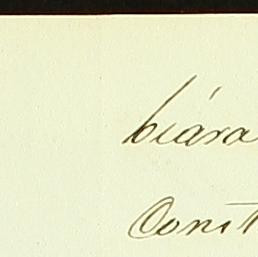 biára
Const